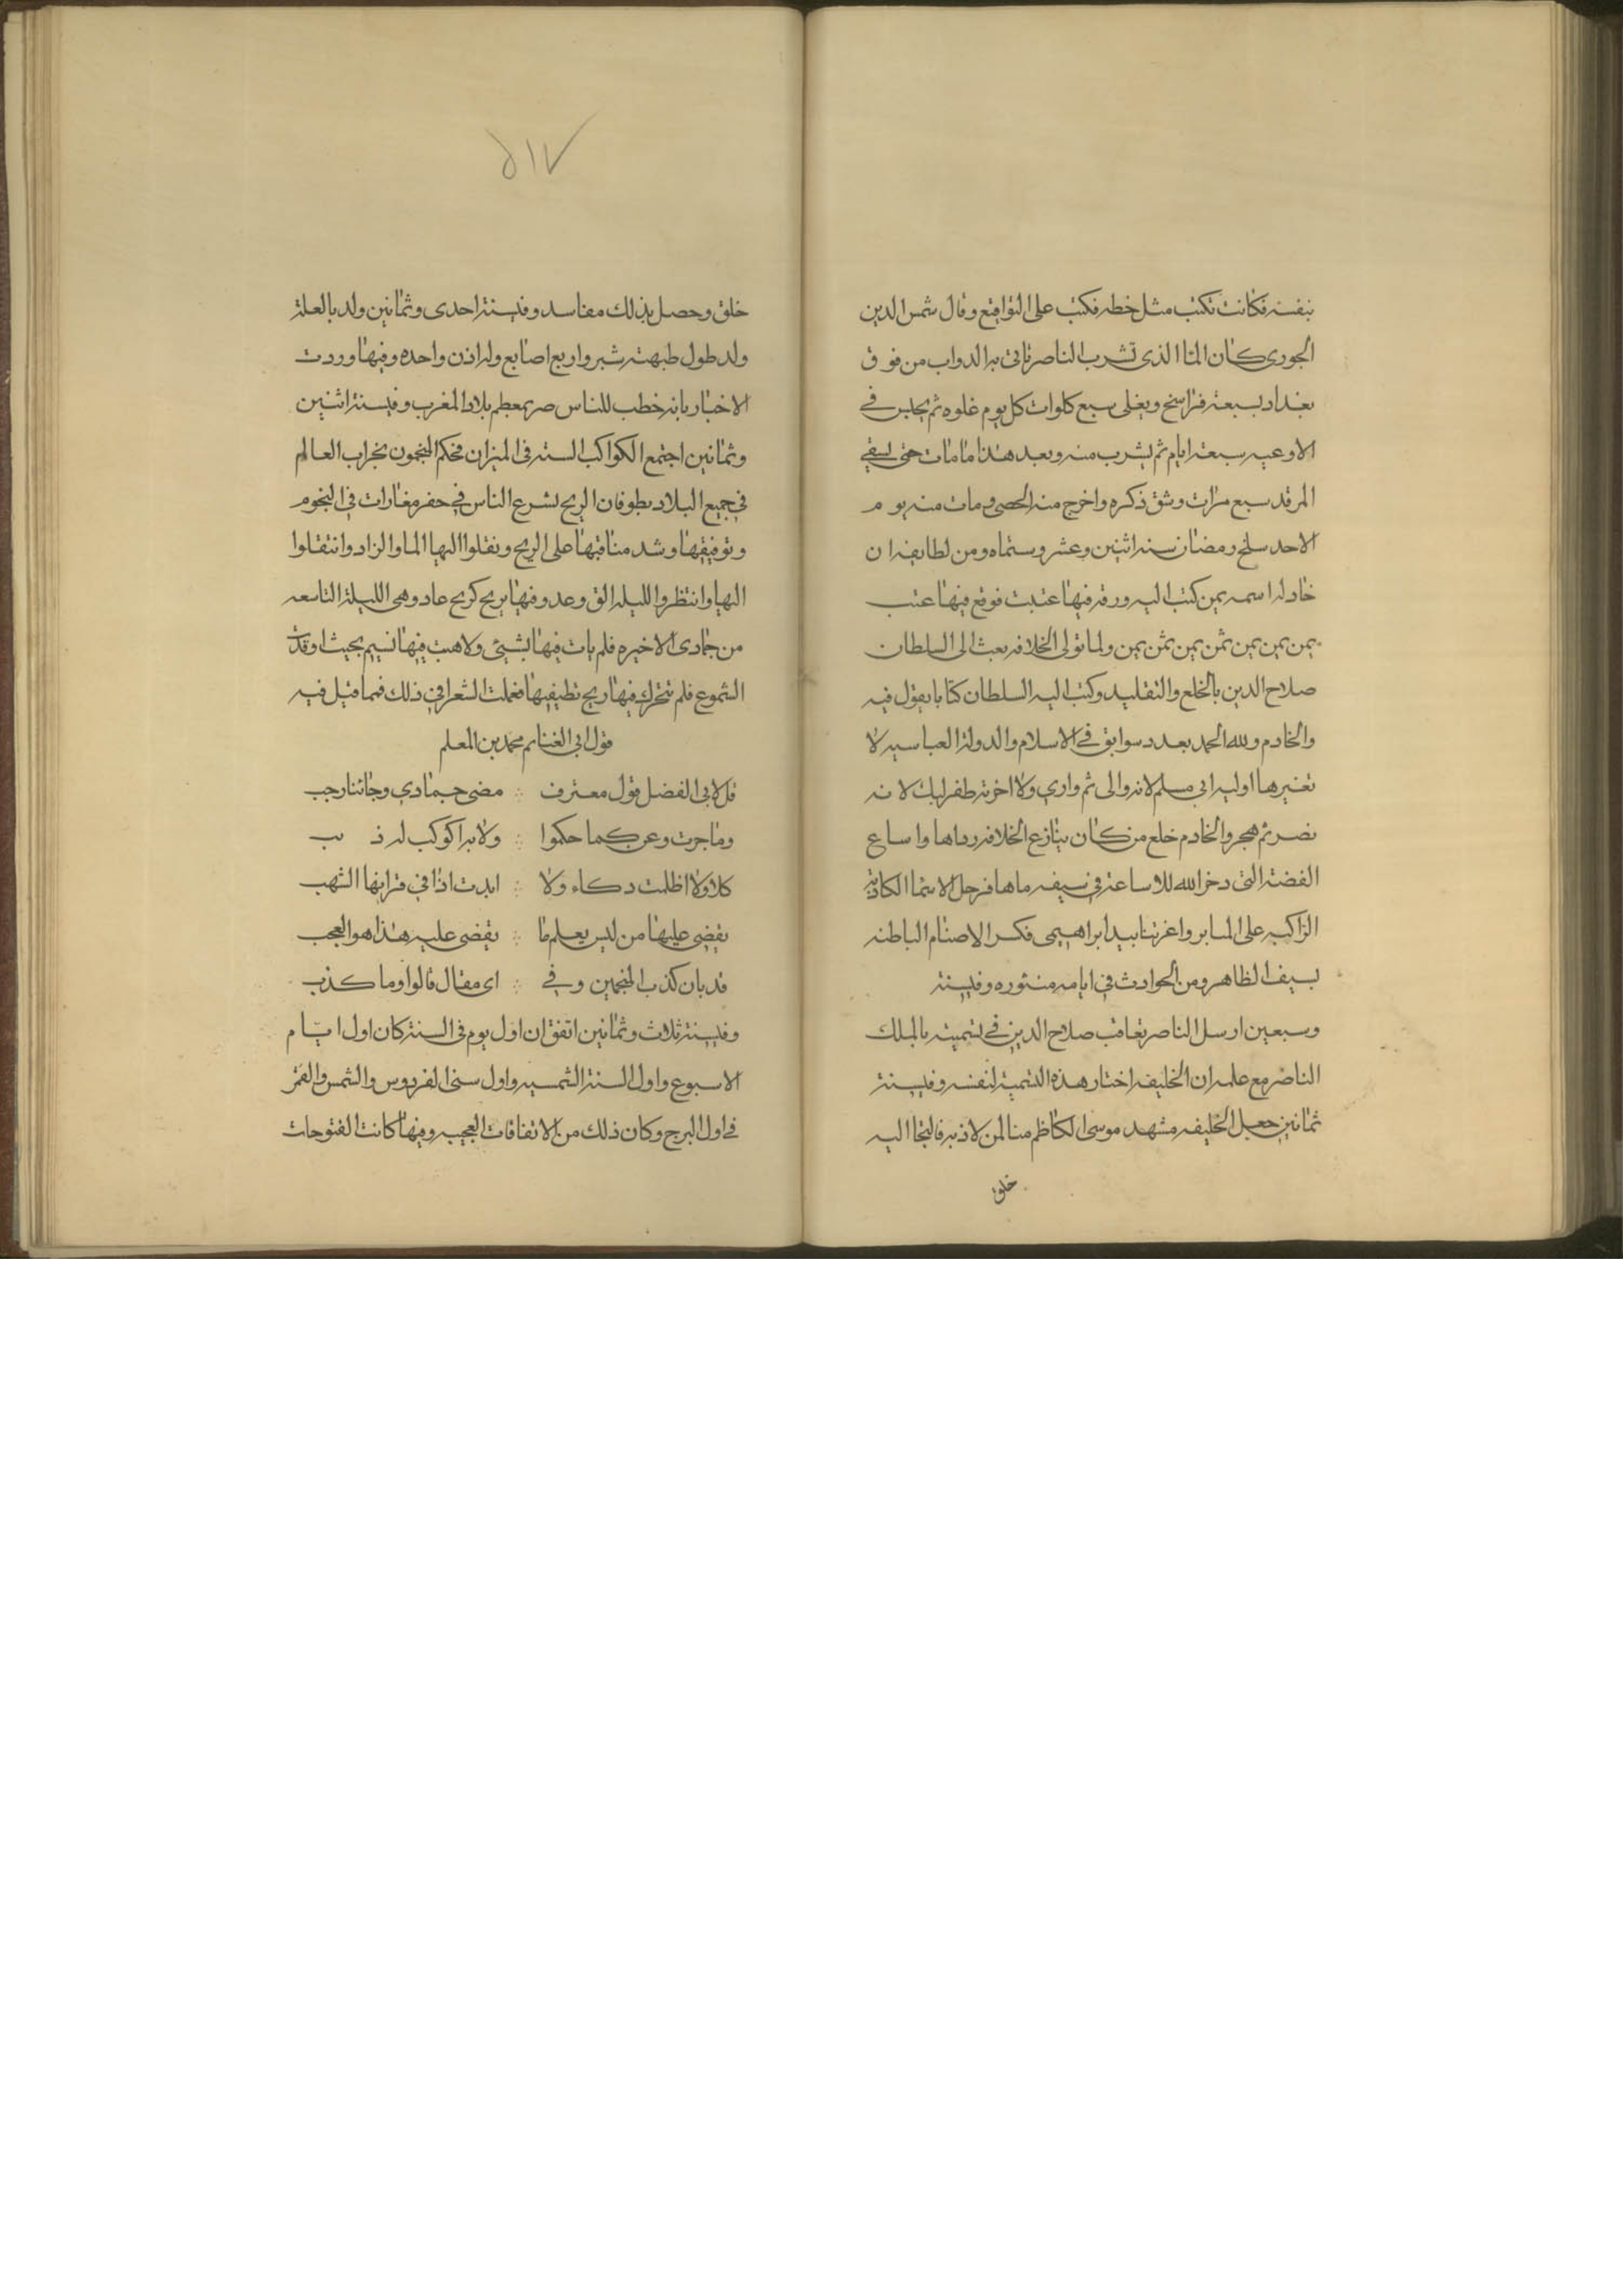 بنفسه فكانت تكتب مثل خطه فكتب على التواقيع وقال شمس الدين
الجوزى كان الماا الذى تشرب الناصر تاتى به الدواب من فوق
بغداد بسبعة فراسخ ويغلى سبع كلوات كل يوم غلوه ثم يجلس في
الاوعيه سبعة ايام ثم يشرب منه وبعد هذا ما مات حتى لسقي
المرقد سبع مرات وشق ذكره واخرج منه الحصى ومات منه يوم
الاحد سلخ رمضان سنه اثنين وعشر وستماه ومن لطايفه ان
خادله اسمه يمن كتب اليه ورقه فيها عتبت فوقع فيها عتب
يمن يمن يمن ثمن يمن ثمن يمن ولما تولى الخلافه بعث الى السلطان
صلاح الدين بالخلع والتقليد وكتب اليه السلطان كتابا يقول فيه
والخادم ولله الحمد بعدد سوابق في الاسلام والدولة العباسيه لا
تغيرها اوليه ابى مسلم لانه والى ثم وارى ولا اخرته طغرلبك لانه
نصر ثم هجر والخادم خلع من كان ينازع الخلافه رداها واساع
الغصة التى دخر الله للاساعة في سيفه ماها فرجل الاسما الكاذبة
الراكبه على المنابر واعزتنا بيد ابراهيمى فكسر الاصنام الباطنه
بسيف الظاهر ومن الحوادث في ايامه منثوره وفيسنة
وسبعين ارسل الناصر تعاقب صلاح الدين في تسميته بالملك
الناصر مع علمه ان الخليفه اختار هذه التسمية لنفسه وفيسنة
ثمانين جعل الخليفه مشهد موسى الكاظم منا لمن لاذ به فالتجا اليه
خلق
٥١٧
خلق وحصل بذلك مفاسد وفيسنة احدى وثمانين ولد بالعلة
ولد طول جبهته شبر واربع اصابع وله اذن واحده وفيها وردت
الاخبار بانه خطب للناصر بمعظم بلاد المغرب وفيسنة اثنين
وثمانين اجتمع الكواكب الستة فى الميزان فحكم المنجمون بخراب العالم
في جميع البلاد بطوفان الريح نشرع الناس في حفر مغارات في التخوم
وتوفيقها وشد منافبها على الريح ونقلوا اليها الما والزاد وانتقلوا
اليها وانتظروا الليله التى وعدوفيها بريح كريح عاد وهى الليلة التاسعه
من جمادى الاخيره فلم يات فيها بشيئ ولا هبت فيها نسيم بحيث اوقدت
الشموع فلم تتحرك فيها ريح تطيفيها فعملت الشعرا في ذلك فمما قيل فيه
قول ابى الغنايم محمد بن المعلم
قل لابى الفضل قول معترف ∴ مضى جمادي وجائنا رجب
وما جرت وعر كما حكموا ∴ ولا بدا كوكب له ذ نب
كلا ولا اظلمت دكاء ولا ∴ ابدت اذا في قرانها الشهب
يقضى عليها من ليس يعلم ما ∴ يقضى عليه هذا هو العجب
قد بان كذب المنجمين وفي ∴ اى مقال قالوا وما كذب
وفيسنة ثلاث وثمانين اتفق ان اول يوم فى السنة كان اول ايام
الاسبوع واول السنة الشمسيه واول سنى الفردوس والشمس والقمر
في اول البرج وكان ذلك من الاتفاقات العجيبه وفيها كانت الفتوحات